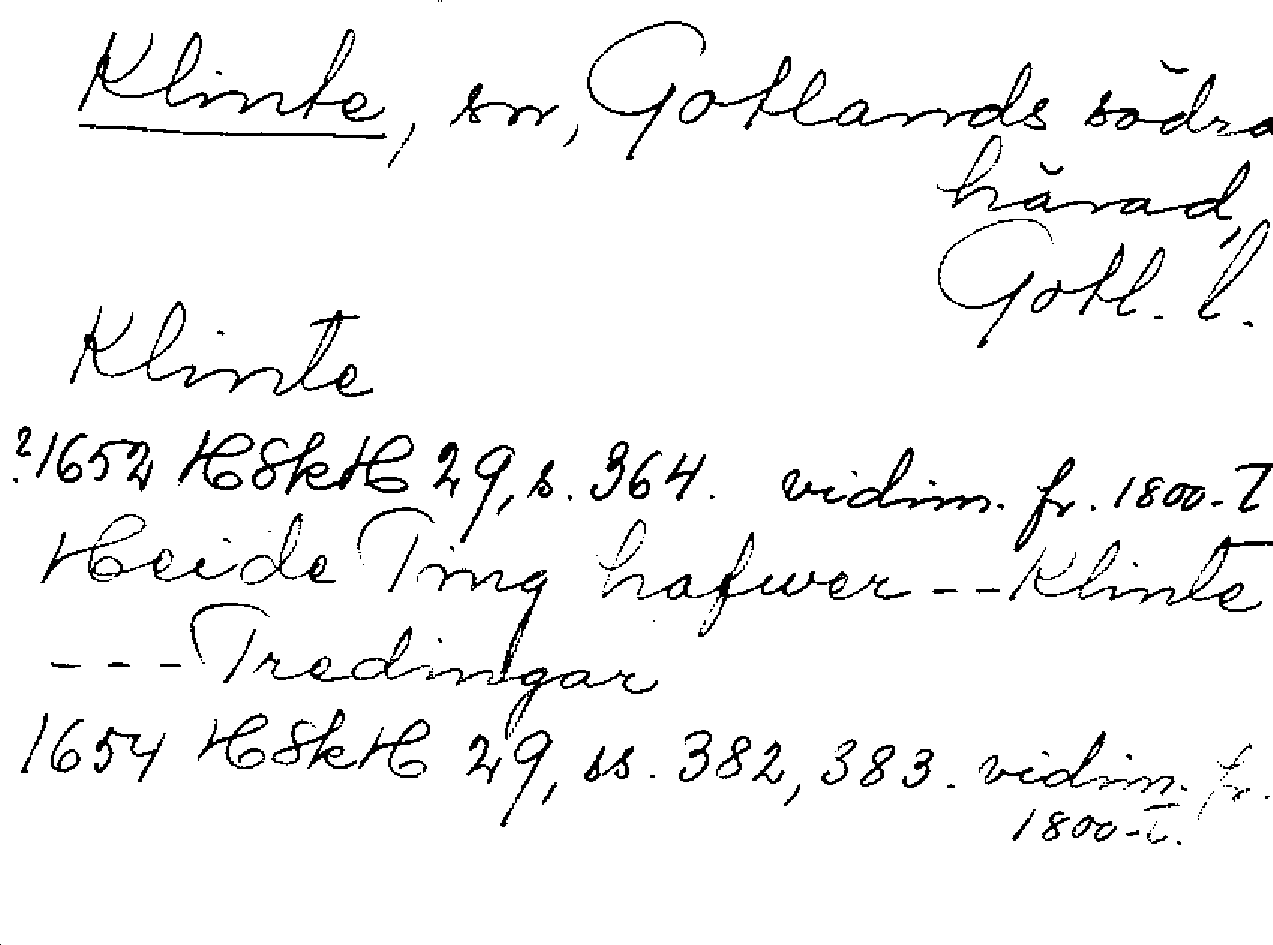 Klinte, sn, Gotlands södra
härad,
Gotl. l.
Klinte
?1652 HSkH 29, s. 364. vidim. fr. 1800-T
Heide Ting hafwer -- Klinte
--- Tredingar
1654 HSkH 29, ss. 382, 383. vidim. fr.
1800-T.